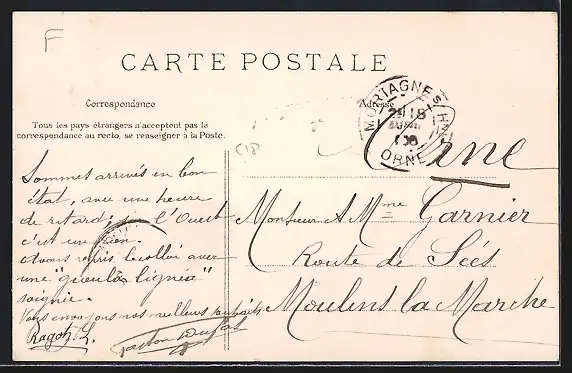 F
CARTE POSTALE
Correspondance
Adresse
Tous les pays étrangers n'acceptent pas la
correspondance au recto, se renseigner à la Poste.
MORTAGNE S HNE
18
08
ORNE
(18
Sommes arrivés en bon
état, avec une heure
de retard; l'Ouest
c'est un rien.
Avons repris le collier avec
une "gueulos lignéa"
soignée.
Vous envoyons nos meilleurs souhaits
Ragot L.
Gaston Dufas
Orne
Monsieur & Mme Garnier
Route de Sées
Moulins la Marche